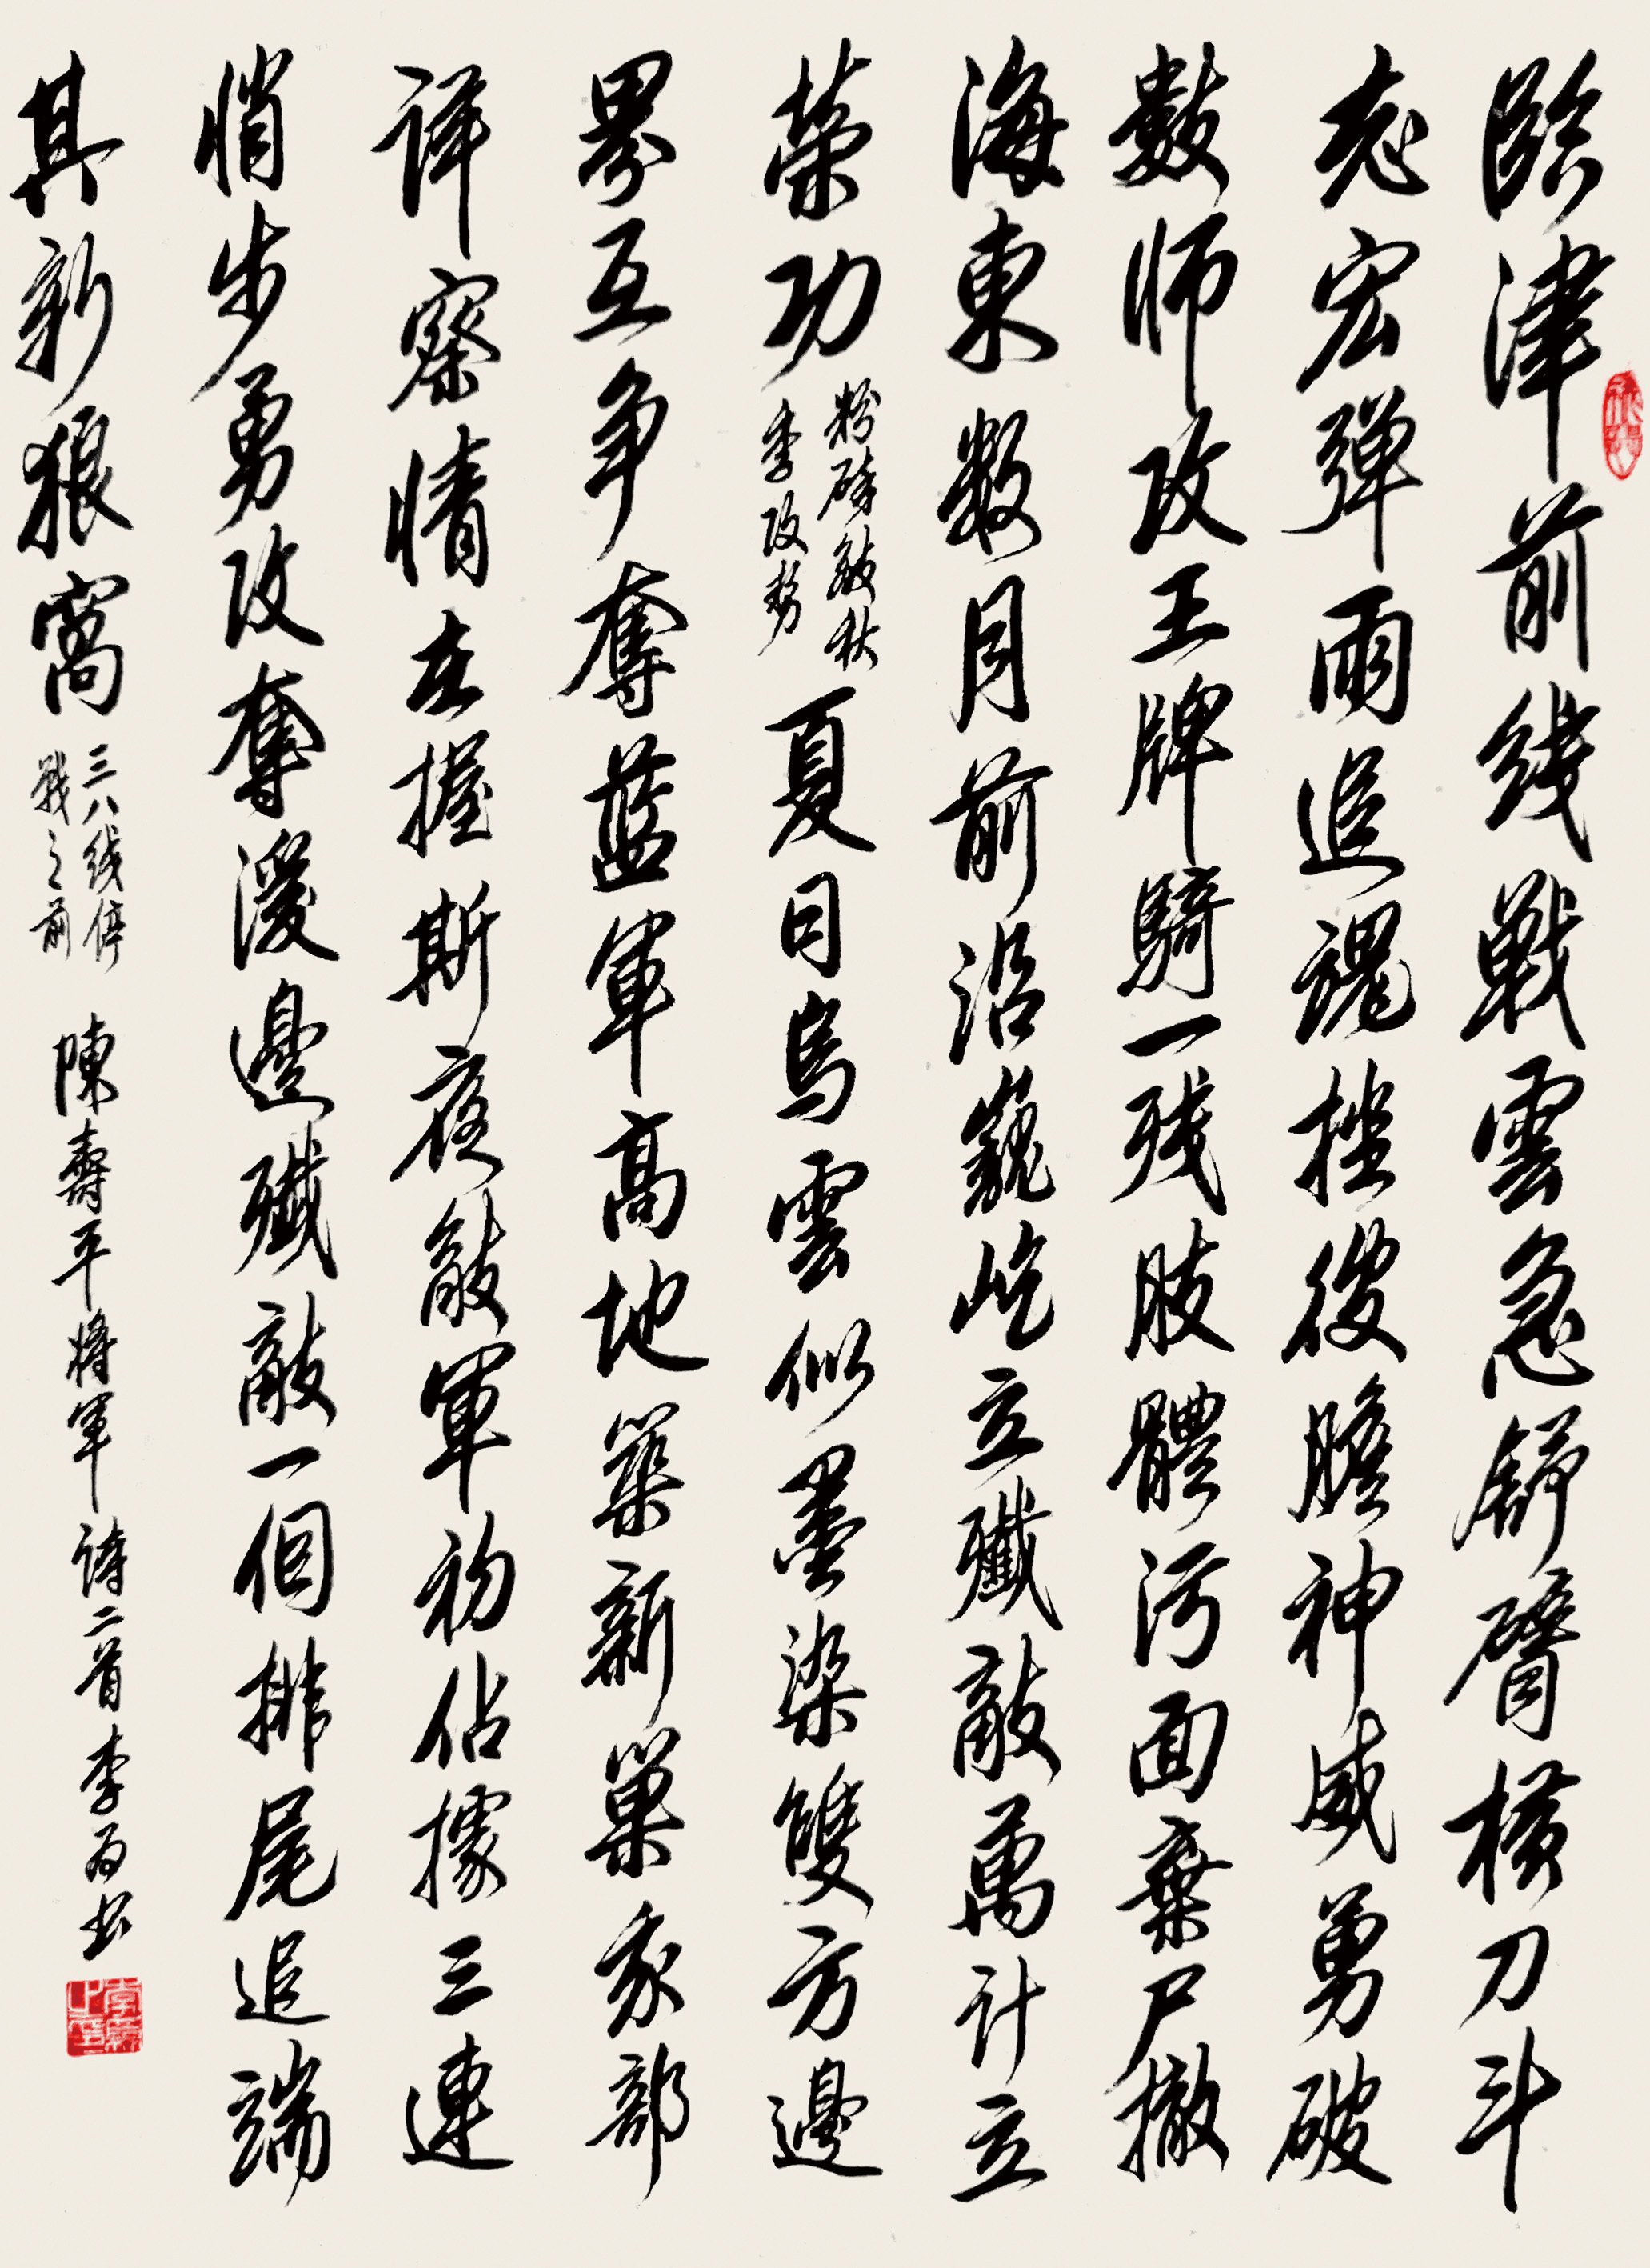 臨津前线戰雲急舒臂橫刀斗
志宏弹雨追魂挫後膽神威勇破
敵師攻王牌騎一残肢體污面棄尸撤
海東数月前沿巍屹立殲敵萬計立
榮功
粉碎敵秋
季攻势
夏日烏雲似墨染雙方邊
界互争奪藍軍高地築新巢我部
詳察情在握斯夜敵軍初佔據三連
悄步勇攻奪漫邊殲敵一個排尾追端
其新狼窩
三八线停
戰之前
陳壽平將軍诗二首李百书